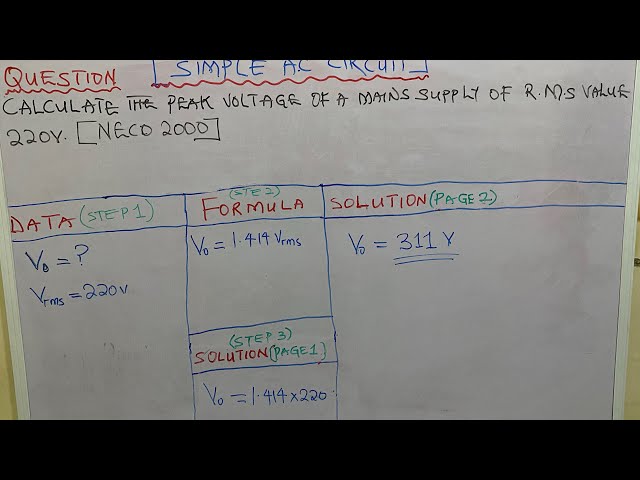 [SIMPLE AC CIRCUIT]
QUESTION
CALCULATE THE PEAK VOLTAGE OF A MAINS SUPPLY OF R.M.S VALUE
220V. [NECO 2000]
DATA (STEP 1)
V₀ = ?
Vrms = 220V
(STEP 2)
FORMULA
V₀ = 1.414 Vrms
(STEP 3)
SOLUTION [PAGE 1]
V₀ = 1.414 x 220
SOLUTION (PAGE 2)
V₀ = 311 V